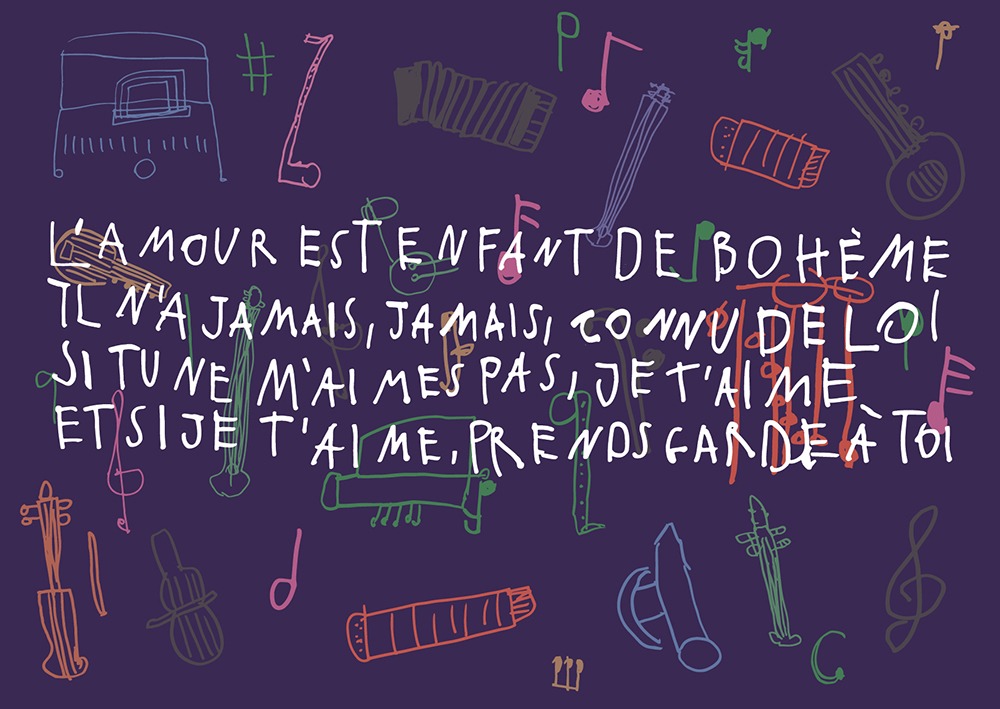 L'AMOUR EST ENFANT DE BOHÈME
IL N'A JAMAIS, JAMAIS, CONNU DE LOI
SI TU NE M'AIMES PAS, JE T'AIME
ET SI JE T'AIME, PRENDS GARDE À TOI